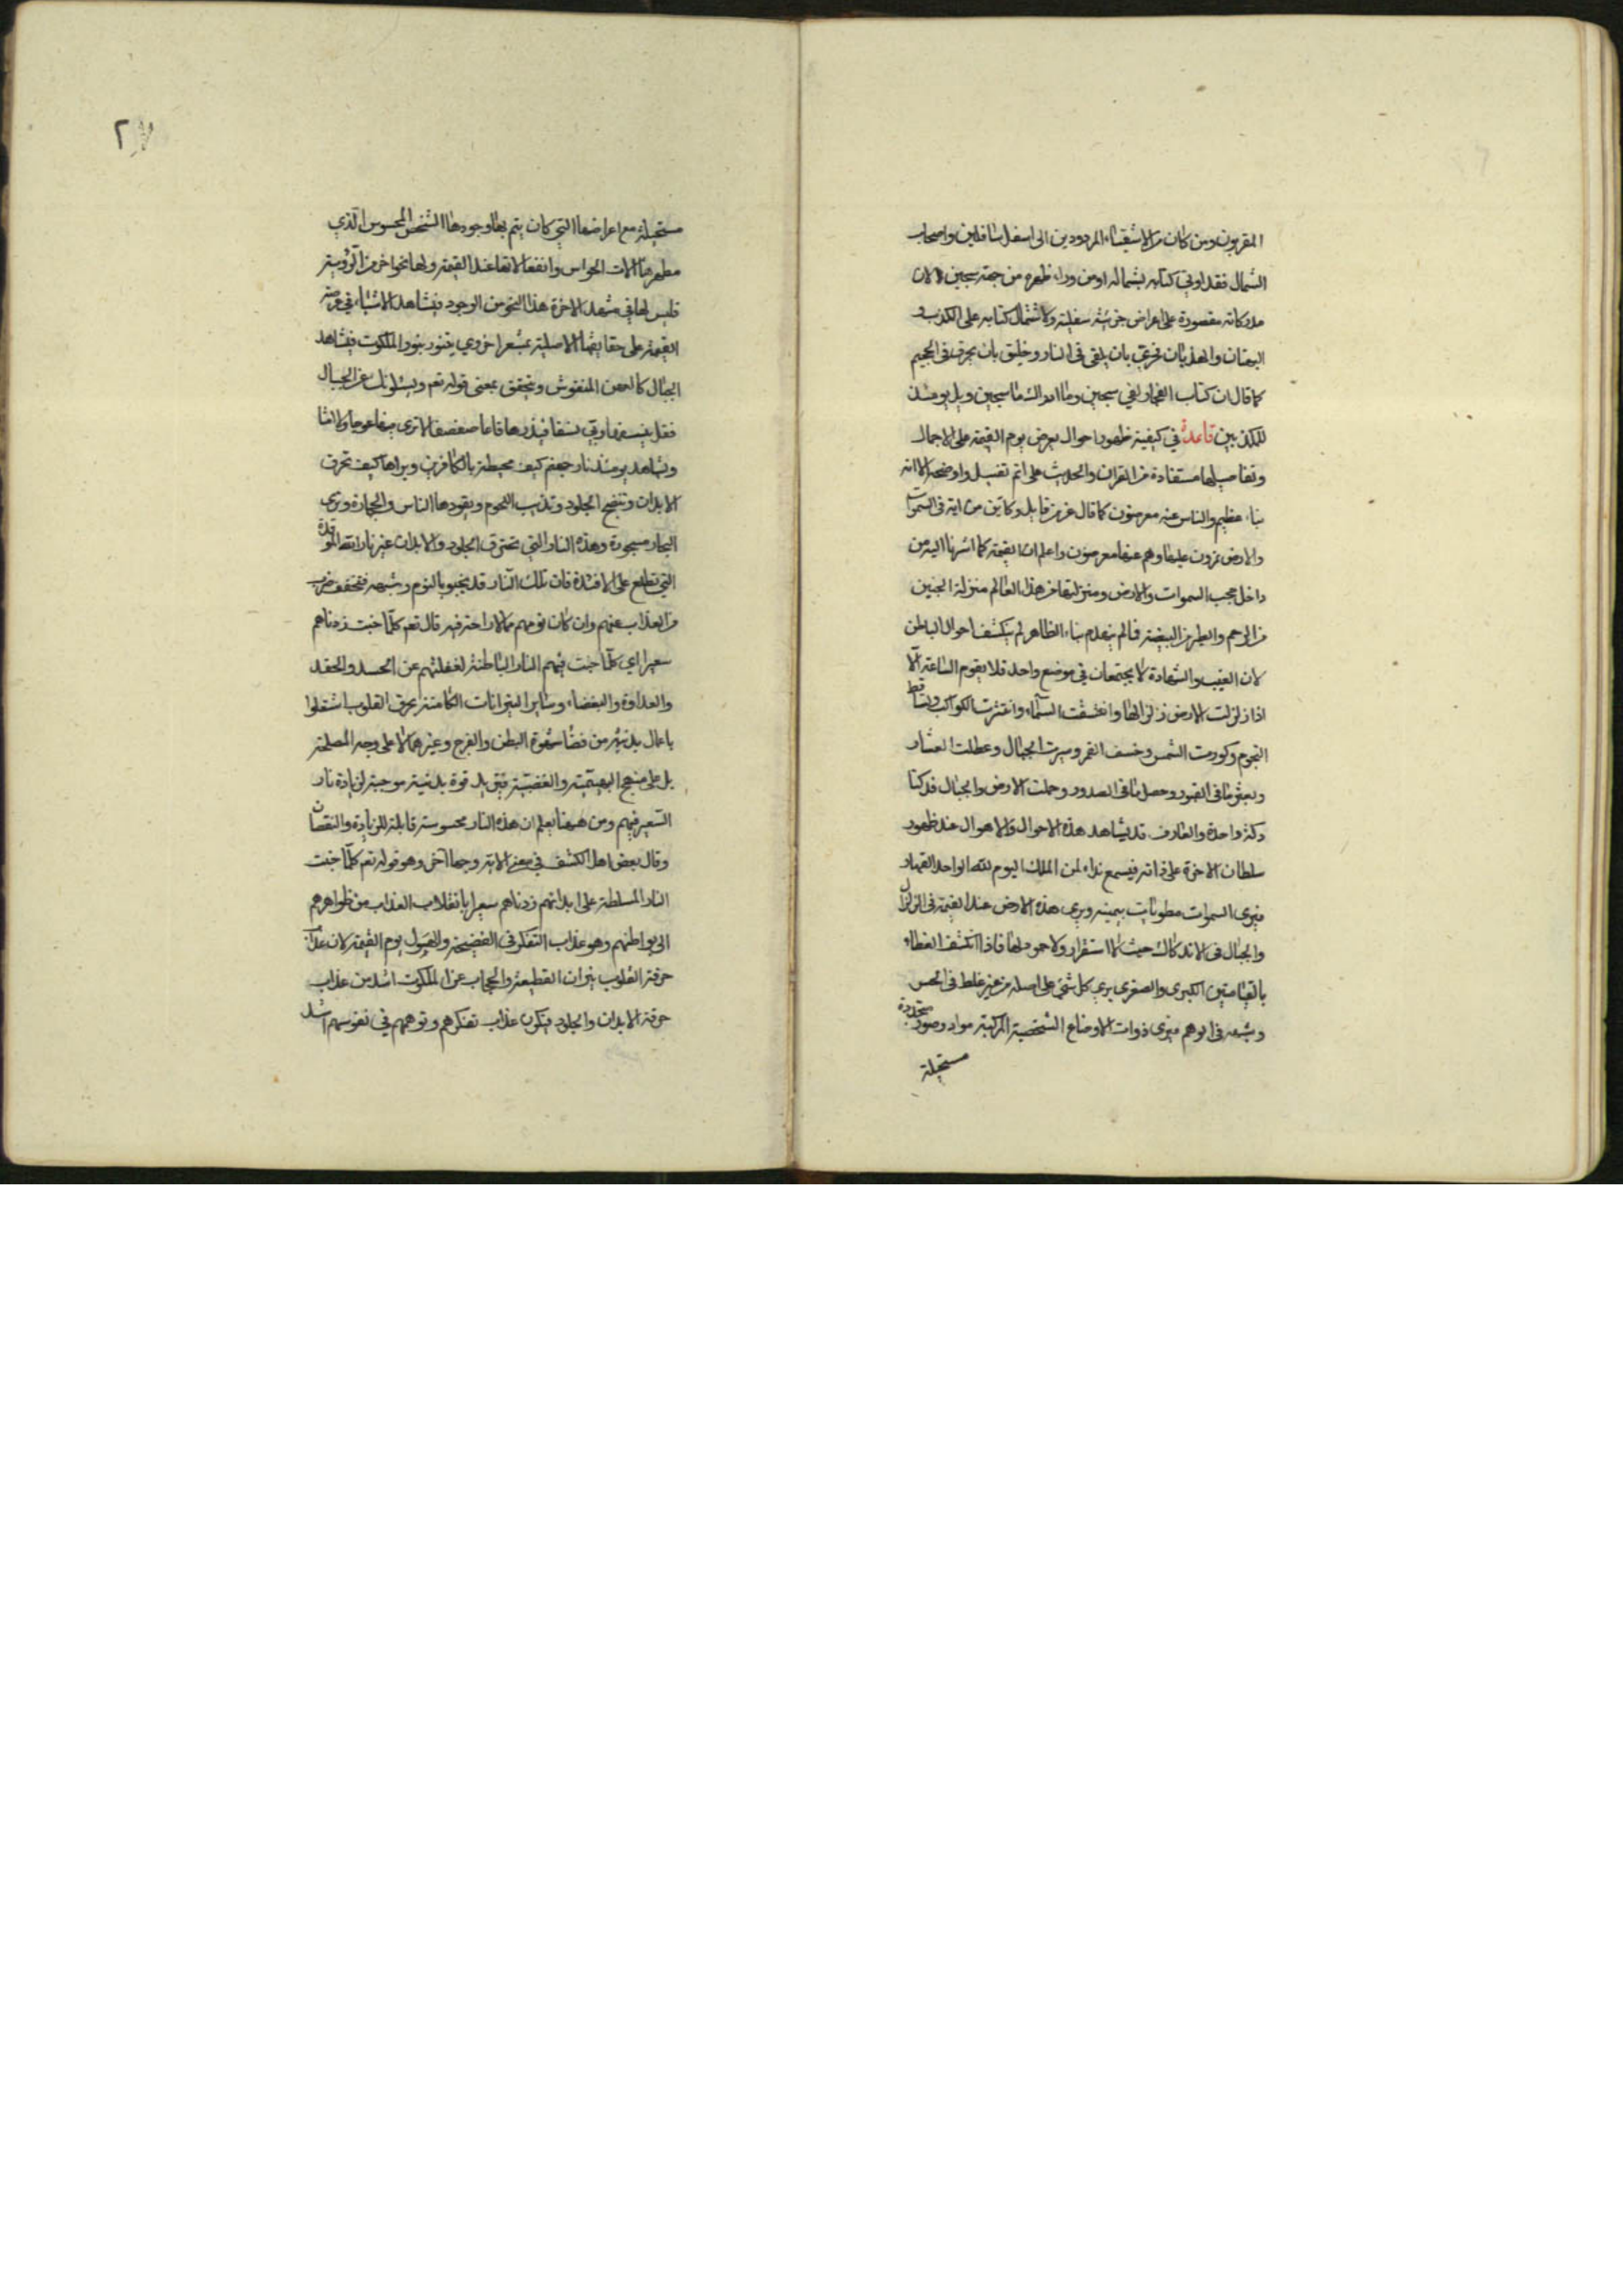 المقربون ومن كان من الاشقياء المردودين الى اسفل سافلين واصحاب
الشمال فقد اوتي كتابه بشماله او من وراء ظهره من جهة سجين لان
مدركاته مقصورة على اغراض جزئية سفلية ولاشتمال كتابه على الكذب و
البهتان والهذيان فحري بان يلقى في النار وخليق بان يحرق في الجحيم
كما قال ان كتاب الفجار لفي سجين وما ادراك ما سجين ويل يومئذ
للمكذبين قاعدة في كيفية ظهور احوال يعرض يوم القيمة على الاجمال
وتفاصيلها مستفادة من القران والحديث على اتم تفصيل واوضحه الا انه
نباء عظيم والناس عنه معرضون كما قال عز من قايل وكاين من اية في السموات
والارض يمرون عليها وهم عنها معرضون واعلم ان القيمة كما اشرنا اليه من
داخل حجب السموات والارض ومنزلتها من هذا العالم منزلة الجنين
من الرحم والطير من البيضة فما لم ينهدم بناء الظاهر لم ينكشف احوال الباطن
لان الغيب والشهادة لا يجتمعان في موضع واحد فلا يقوم الساعة الا
اذا زلزلت الارض زلزالها وانشقت السماء وانتثرت الكواكب وتساقط
النجوم وكورت الشمس وخسف القمر وسيرت الجبال وعطلت العشار
وبعثر ما في القبور وحصل ما في الصدور وحملت الارض والجبال فدكتا
دكة واحدة والعارف قد يشاهد هذه الاحوال والاهوال عند ظهور
سلطان الاخرة على ذاته فيسمع نداء لمن الملك اليوم لله الواحد القهار
فيرى السموات مطويات بيمينه ويرى هذه الارض عند القيمة في الزلزال
والجبال في الاندكاك حيث لا استقرار ولا جمود لها فاذا انكشف الغطاء
بالقيامتين الكبرى والصغرى يرى كل شيء على اصله من غير غلط في الحس
وشبهه في الوهم فيرى ذوات الاوضاع الشخصية المركبة مواد وصور متجددة
مستحيلة
٢٧
مستحيلة مع اعراضها التي كان يتم بها وجودها الشخص المحسوس الذي
مظهرها الات الحواس وانفعالاتها عند القيمة ولها نحو اخر من الرؤية
فليس لها في مشهد الاخرة هذا النحو من الوجود فيشاهد الاشياء في عرصة
القيمة على حقايقها الاصلية بمشعر اخروي يتنور بنور الملكوت فيشاهد
الجبال كالعهن المنفوش ويتحقق بمعنى قوله تعم ويسئلونك عن الجبال
فقل ينسفها ربي نسفا فيذرها قاعا صفصفا لا ترى فيها عوجا ولا امتا
ويشاهد يومئذ نار جهنم كيف محيطة بالكافرين ويراها كيف تحرق
الابدان وتنضج الجلود وتذيب اللحوم وقودها الناس والحجارة ويرى
البحار مسجورة وهذه النار التي تحترق الجلود والابدان غير نار الله الموقدة
التي تطلع على الافئدة فان تلك النار قد يخبو بالنوم وشبهه فيخفف ضرب
من العذاب عنهم وان كان نومهم مما لا راحة فيه قال تعم كلما خبت زدناهم
سعيرا اي كلما خبت فيهم النار الباطنة لغفلتهم عن الحسد والحقد
والعداوة والبغضاء وساير النيرانات الكامنة تحرق القلوب اشتغلوا
باعمال بدنية من قضاء شهوة البطن والفرج وغيرهما لا على وجه المصلحة
بل على منهج البهيمية والغضبية فتزيد قوة بدنية موجبة لزيادة نار
السعير فيهم ومن ههنا يعلم ان هذه النار محسوسة قابلة للزيادة والنقصان
وقال بعض اهل الكشف في معنى الاية وجها اخر وهو قوله تعم كلما خبت
النار المسلطة على ابدانهم زدناهم سعيرا بانقلاب العذاب من ظواهرهم
الى بواطنهم وهو عذاب التفكر في الفضيحة والهول يوم القيمة لان عذاب
حرقة القلوب بنيران القطيعة والحجاب عن الملكوت اشد من عذاب
حرقة الابدان والجلود فيكون عذاب تفكرهم وتوهمهم في نفوسهم اشد